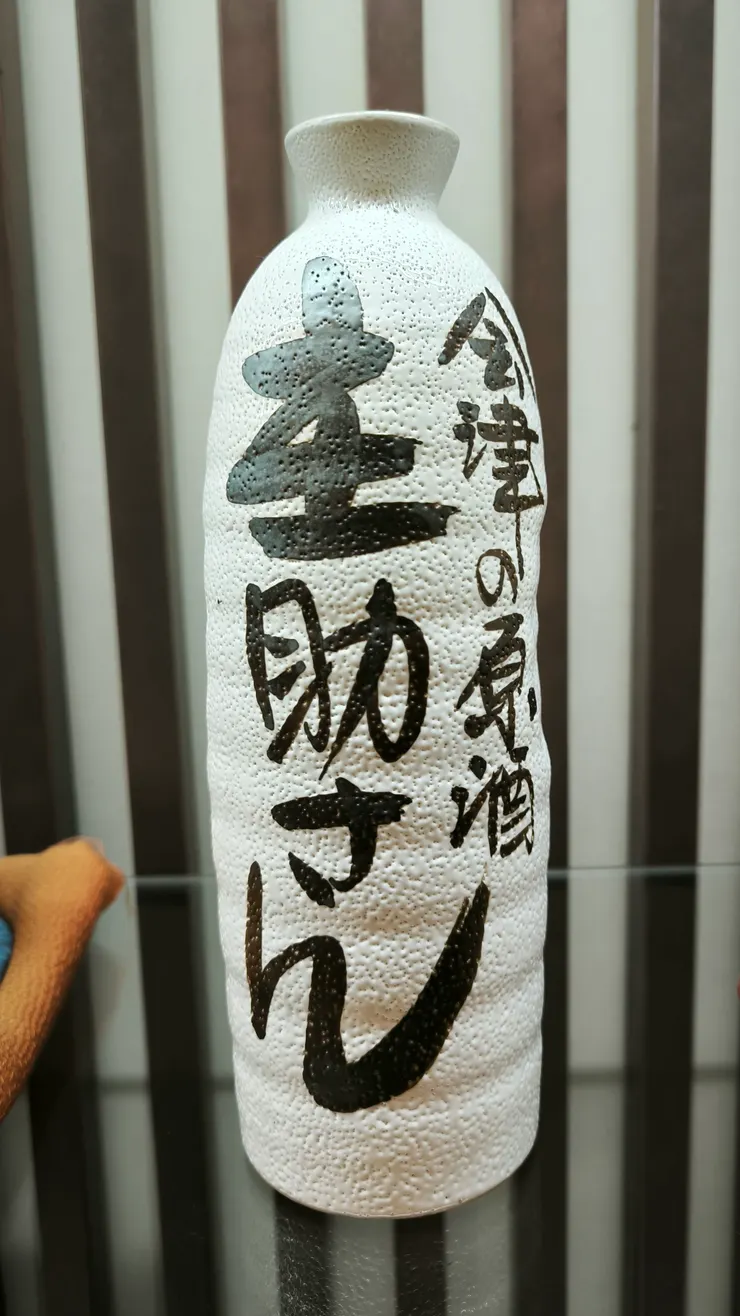 会津の原酒
庄助さん